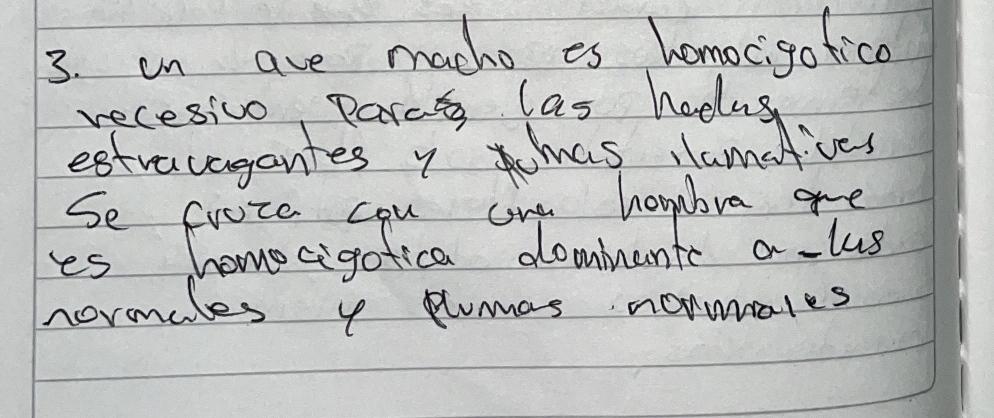 3. un ave macho es homocigotico
recesivo, Para las
estravagantes y plumas llamativas
Se cruza con una hembra que
es homocigotica dominante a-las
normales y plumas normales